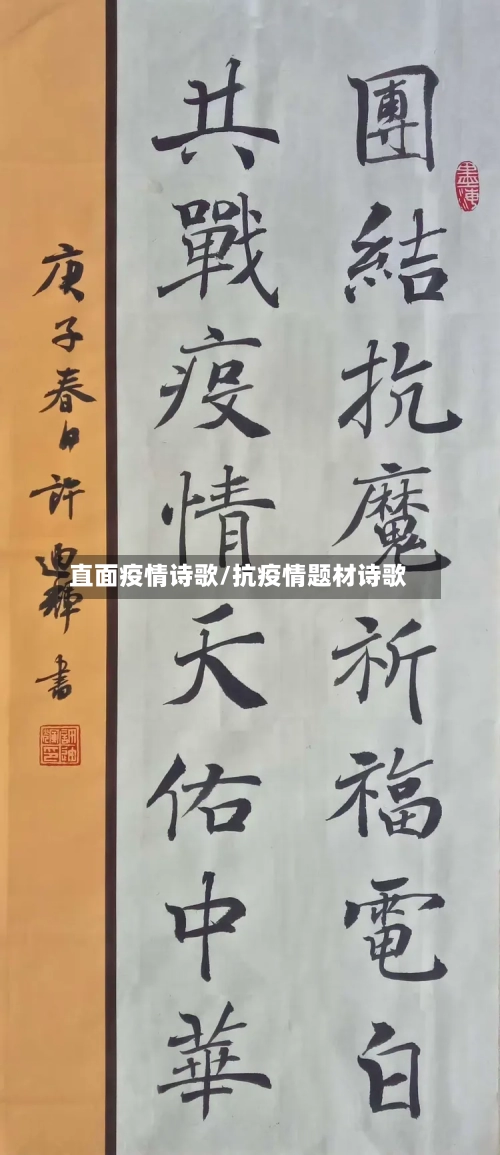 團結抗魔祈福電白
共戰疫情天佑中華
庚子春日許迪輝書
直面疫情诗歌/抗疫情题材诗歌